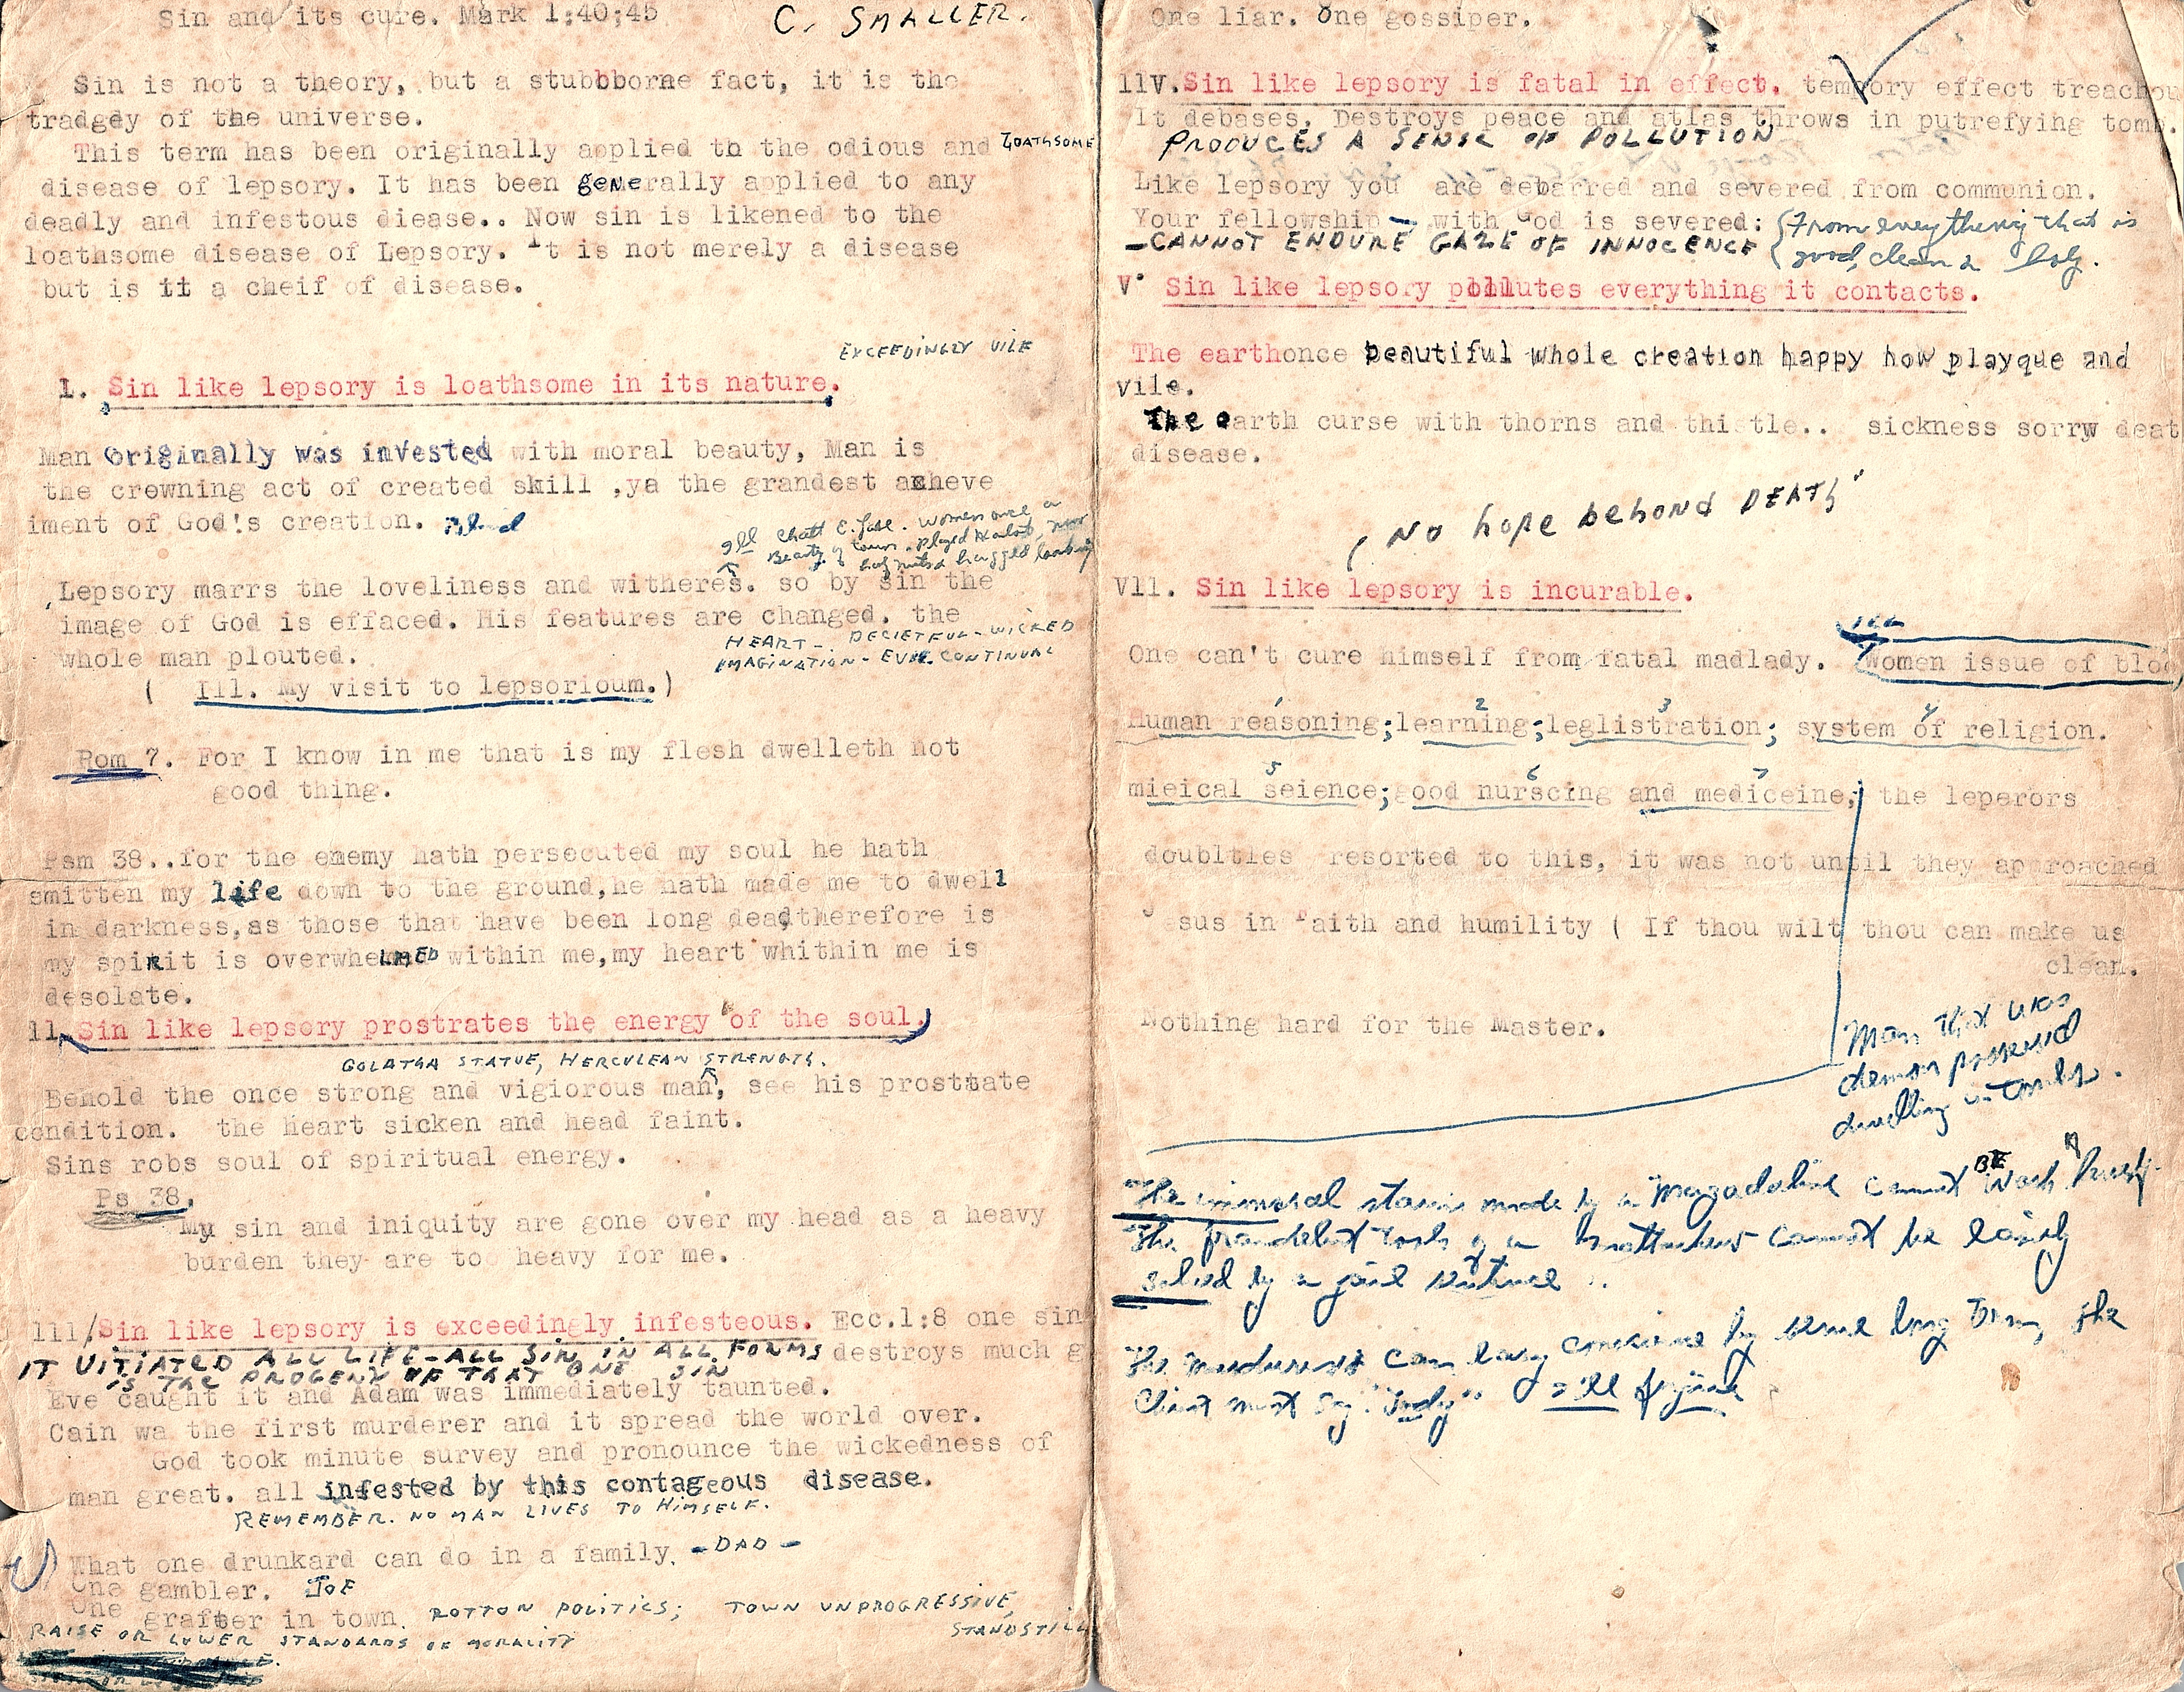 Sin and its cure. Mark 1:40;45
C. SMALLER.
Sin is not a theory, but a stubbborne fact, it is the
tradgdy of the universe.
This term has been originally applied th the odious and LOATHSOME
disease of lepsory. It has been generally applied to any
deadly and infestous diease.. Now sin is likened to the
loathsome disease of Lepsory. It is not merely a disease
but is it a cheif of disease.
EXCEEDINGLY VILE
I. Sin like lepsory is loathsome in its nature.
Man originally was invested with moral beauty, Man is
the crowning act of created skill ,ya the grandest acheve
iment of God's creation.
Ill Chatt E. Women once a
Beauty of town. Played Harlot, now
hagged looking
Lepsory marrs the loveliness and witheres. so by sin the
image of God is effaced. His features are changed. the
whole man plouted.
HEART - DECIETFUL - WICKED
IMAGINATION - EVIL CONTINUAL
( Ill. My visit to lepsorioum.)
Rom 7. For I know in me that is my flesh dwelleth not
good thing.
Psm 38..for the enemy hath persecuted my soul he hath
smitten my life down to the ground,he hath made me to dwell
in darkness,as those that have been long dead,therefore is
my spirit is overwhelmed within me,my heart whithin me is
desolate.
11. Sin like lepsory prostrates the energy of the soul.
GOLATHA STATUE, HERCULEAN STRENGTH.
Behold the once strong and vigiorous man, see his prosttate
condition. the heart sicken and head faint.
Sins robs soul of spiritual energy.
Ps 38.
My sin and iniquity are gone over my head as a heavy
burden they are too heavy for me.
111/Sin like lepsory is exceedingly infesteous. Ecc.1:8 one sin
IT VITIATED ALL LIFE-ALL SIN IN ALL FORMS destroys much g
IS THE PROGENY OF THAT ONE SIN
Eve caught it and Adam was immediately taunted.
Cain wa the first murderer and it spread the world over.
God took minute survey and pronounce the wickedness of
man great. all infested by this contageous disease.
REMEMBER. NO MAN LIVES TO HIMSELF.
What one drunkard can do in a family. - DAD -
One gambler. JOE
One grafter in town. ROTTON POLITICS; TOWN UNPROGRESSIVE,
STANDSTILL
RAISE OR LOWER STANDARDS OF MORALITY
One liar. One gossiper.
11V.Sin like lepsory is fatal in effect. tempory effect treachou
It debases. Destroys peace and atlas throws in putrefying tomb.
PRODUCES A SENSE OF POLLUTION
Like lepsory you are debarred and severed from communion.
Your fellowship - with God is severed:
- CANNOT ENDURE GAZE OF INNOCENCE
(From everything that is
good, clean & holy.
V. Sin like lepsory pollutes everything it contacts.
The earthonce beautiful whole creation happy how playque and
vile.
The earth curse with thorns and thistle.. sickness sorrw deat
disease.
( NO hope behond DEATH
Vll. Sin like lepsory is incurable.
Ill
One can't cure himself from fatal madlady. Women issue of bloo
1 2 3 4
Human reasoning;learning;leglistration; system of religion.
5 6 7
mieical seience;good nurscing and mediceine; the leperors
doubltles resorted to this, it was not until they approached
Jesus in Faith and humility ( If thou wilt thou can make us
clean.
Nothing hard for the Master.
Man that was
demon possessed
dwelling in tombs.
The immoral stains made by a Magadaline cannot BE wash
The fraudelent tools of a cannot be easily
solved by a jail sentence ..
The murderers can easy conscience by some long term, The
Christ must say "Judy" = Ill